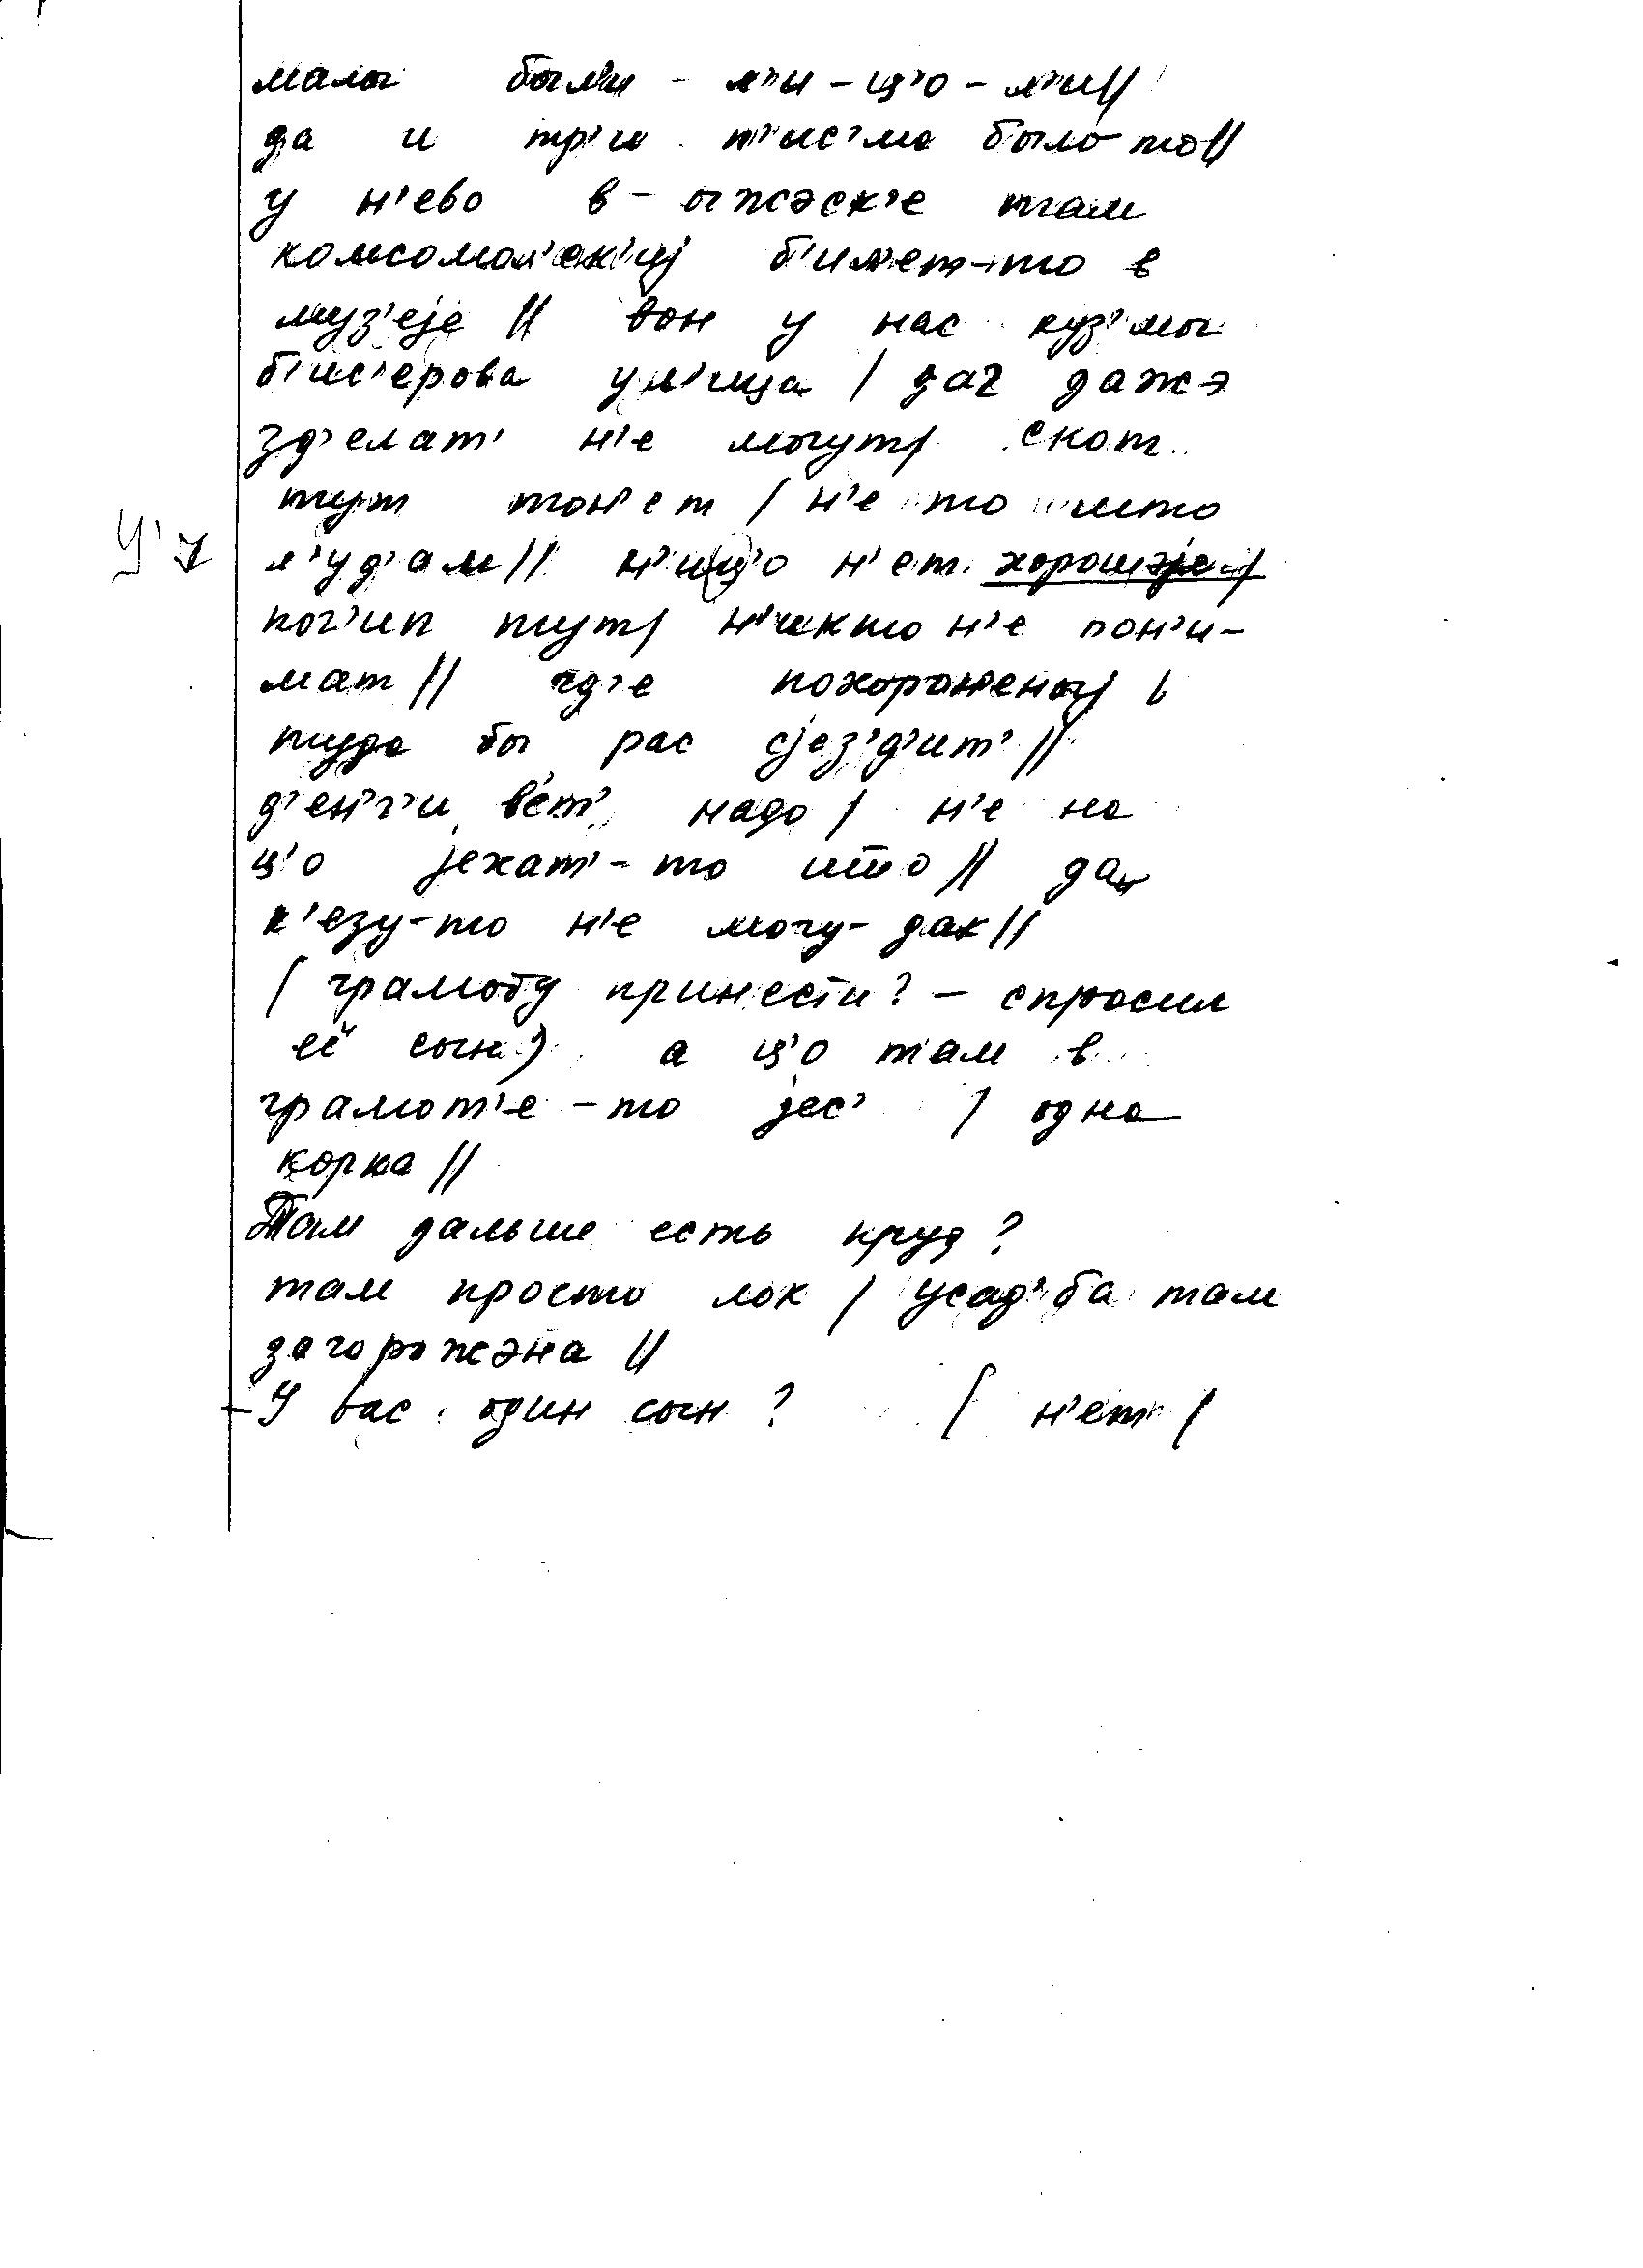 малы был'и - л'и - ц'о - л'и //
да и тр'и п'ис'ма было то //
у н'ево в - ыжэск'е там
комсомол'ск'иј б'ил'ет-то в
муз'еје // вон у нас куз'мы
б'ис'ерова ул'ица / даг дажэ
зд'елат' н'е могут / скот
тут тон'ет / н'е то што
л'уд'ам // н'иц'о н'ет хорошэје /
ног'ип тут / н'икто н'е пон'и-
мат // гд'е похороненыј /
туда бы рас сјез'д'ит' //
д'ен'г'и вет' надо / н'е на
ц'о јехат' - то што // да
в'езу-то н'е могу - дак //
( грамоту принести? - спросил
её сын) а ц'о там в
грамот'е - то јес' / одна
корка //
Там дальше есть пруд?
там просто лок / усад'ба там
загорожэна //
- У вас один сын? / н'ет /